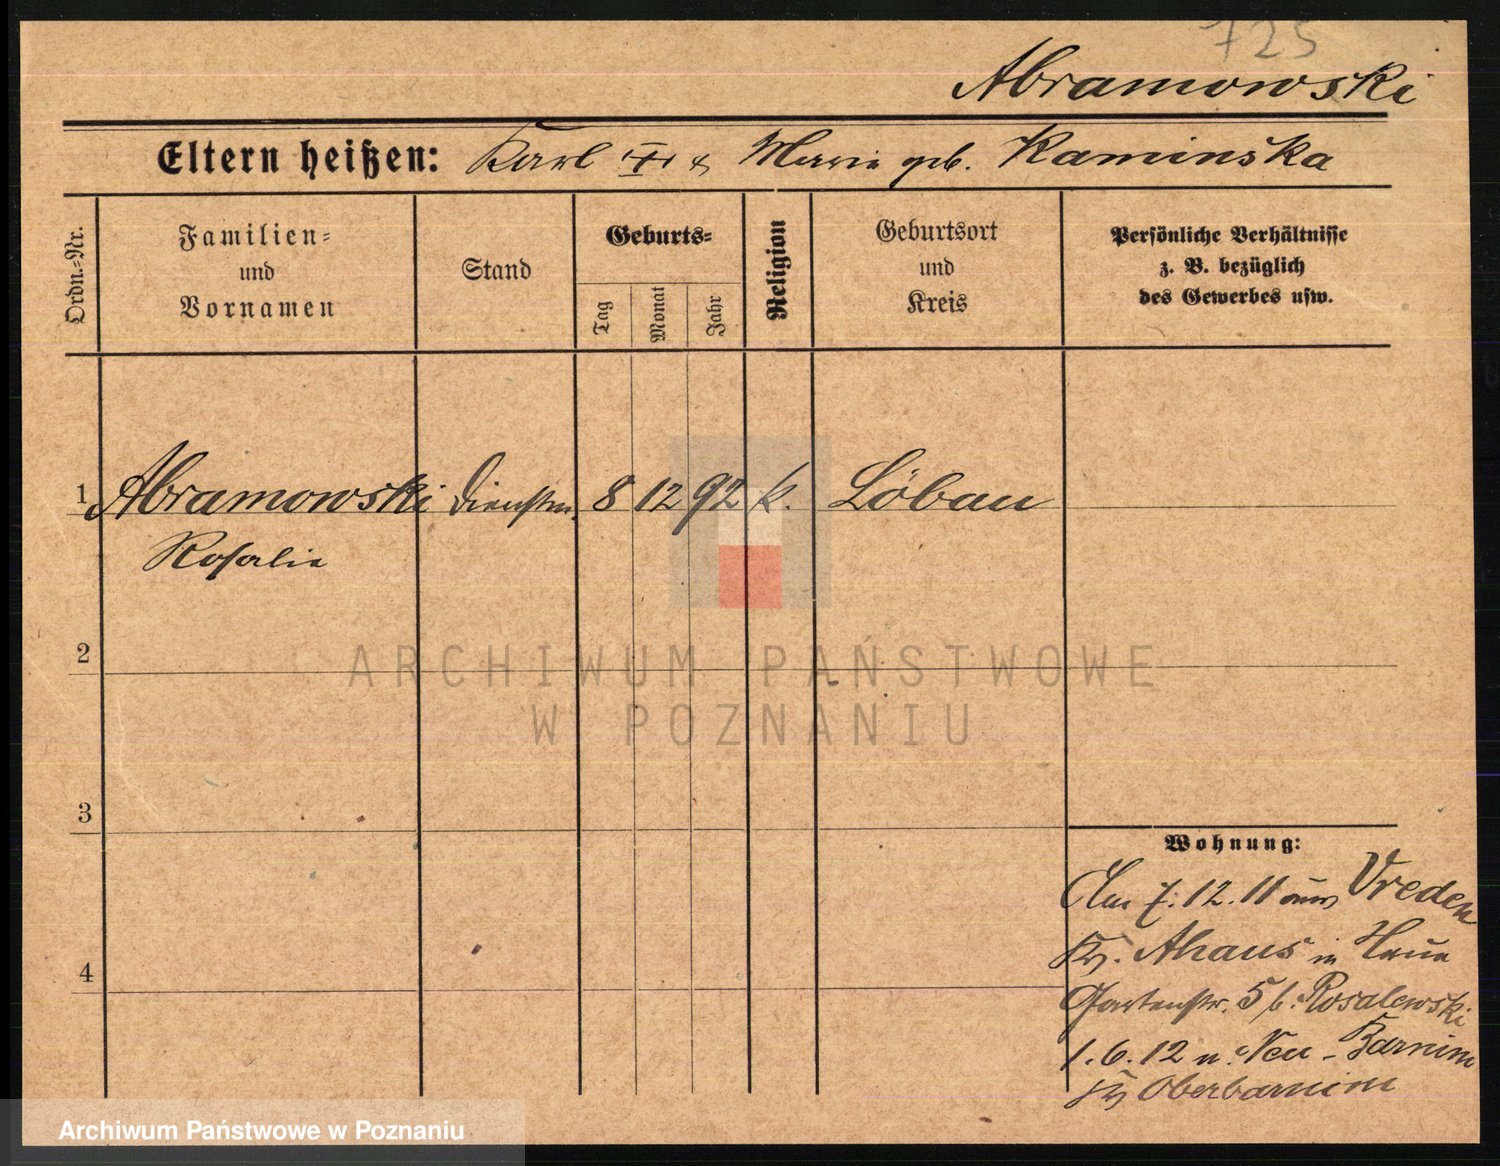 725
Abramowski
Eltern heißen: Karl III & Marie geb. Kaminska
Ordn.-Nr.
Familien-
und
Vornamen
Stand
Geburts-
Tag
Monat
Jahr
Religion
Geburtsort
und
Kreis
Persönliche Verhältnisse
z. B. bezüglich
des Gewerbes usw.
1 Abramowski Dienstm. 8 12 92 k. Löbau
Rosalie
2
3
4
Wohnung:
Am 7. 12. 11 aus Vreden
Kr. Ahaus in
Gartenstr. 5 b. Rosalewski
1. 6. 12 n. Neu-Barnim
Kr Oberbarnim
ARCHIWUM PAŃSTWOWE
W POZNANIU
Archiwum Państwowe w Poznaniu